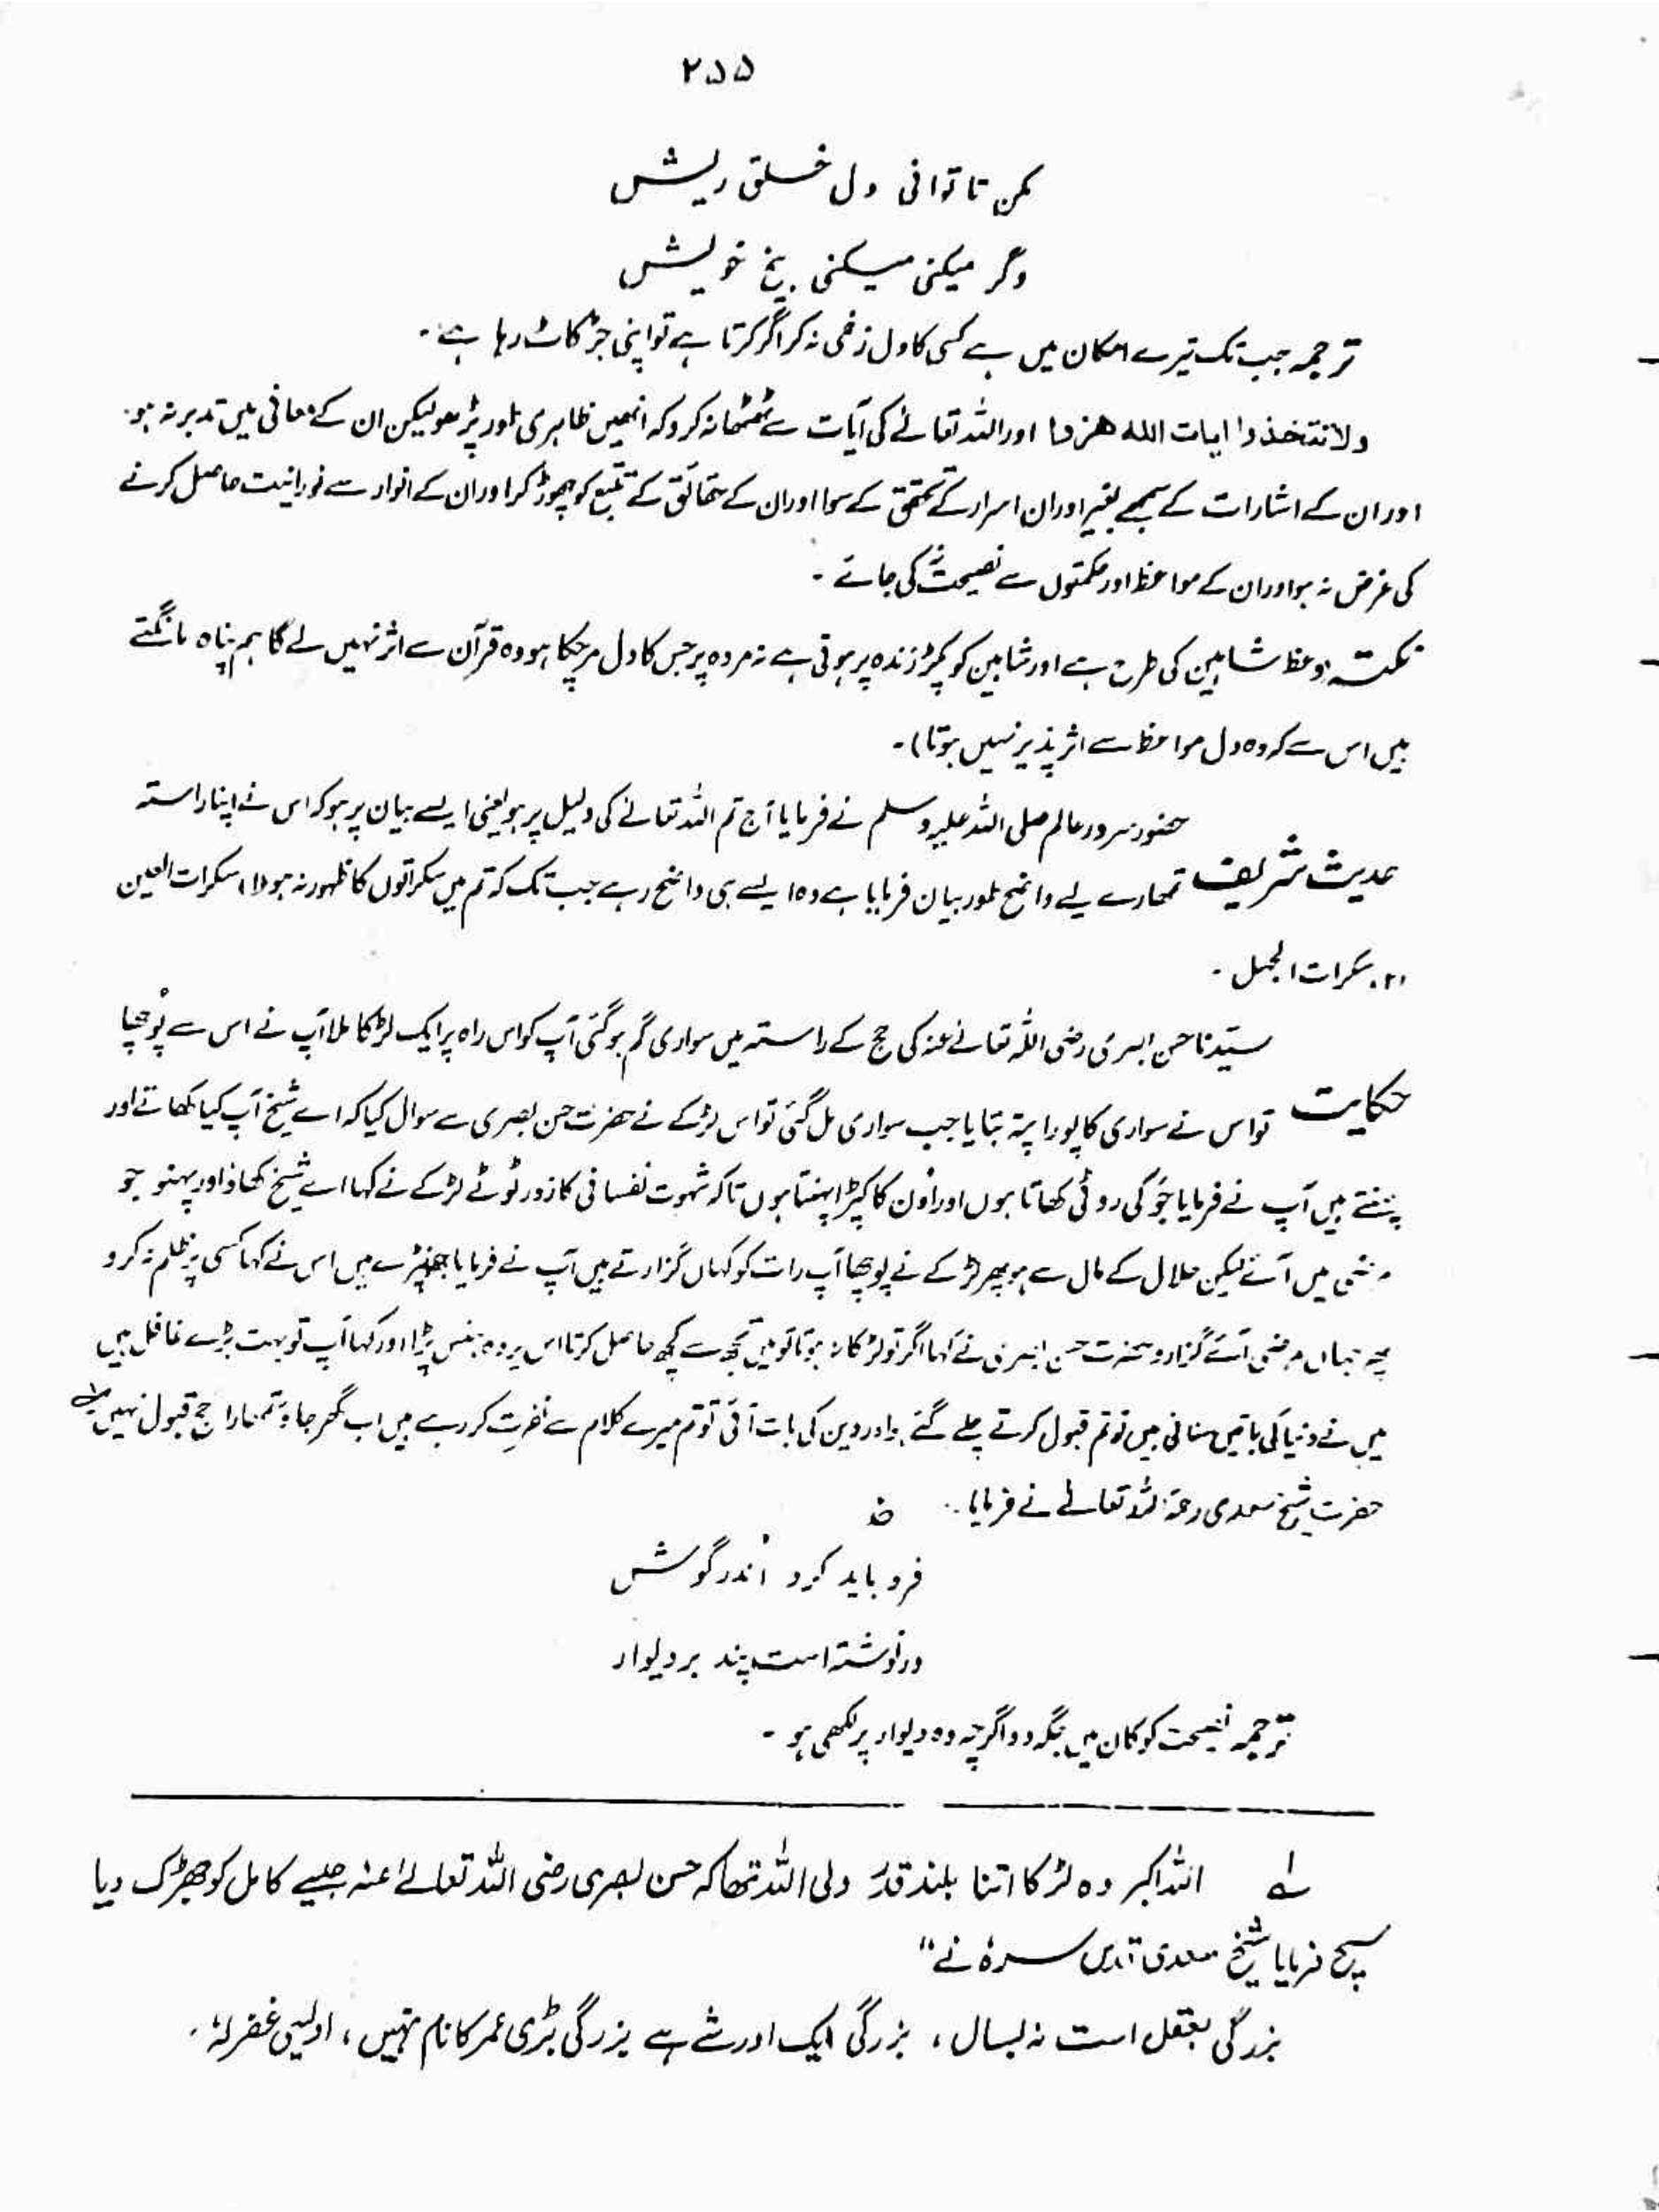 ۲۵۵
مکن تا توانی دل خلق ریش
وگر میکنی میکنی بیخ خویش
ترجمہ جب تک تیرے امکان میں ہے کسی کا دل زخمی نہ کر اگر کرتا ہے تو اپنی جڑ کاٹ رہا ہے۔
ولا تتخذوا ایات اللہ ھزوا اور اللہ تعالےٰ کی آیات سے ٹھٹھا نہ کرو کہ انھیں ظاہری طور پڑھو لیکن ان کے معانی میں تدبر نہ ہو۔
اور ان کے اشارات کے سمجھے بغیر اور ان اسرار کے تحقق کے سوا اور ان کے حقائق کے تتبع کو چھوڑ کر اور ان کے انوار سے نورانیت حاصل کرنے
کی غرض نہ ہو اور ان کے مواعظ اور حکمتوں سے نصیحت نہ کی جائے۔
نکتہ: وعظ شاہین کی طرح ہے اور شاہین کو پکڑ زندہ پر ہوتی ہے نہ مردہ پر جس کا دل مرچکا ہو وہ قرآن سے اثر نہیں لے گا ہم پناہ مانگتے
ہیں اس سے کہ وہ دل مواعظ سے اثر پذیر نہیں ہوتا)۔
حضور سرور عالم صلی اللہ علیہ وسلم نے فرمایا آج تم اللہ تعالےٰ کی دلیل پر ہو یعنی ایسے بیان پر ہو کہ اس نے اپنا راستہ
حدیث شریف تمھارے لیے واضح طور بیان فرمایا ہے وہ ایسے ہی واضح رہے جب تک کہ تم میں سکراتوں کا ظہور نہ ہو (۱) سکرات العین
(۲) سکرات الجہل۔
سیّدنا حسن بصری رضی اللہ تعالےٰ عنہ کی حج کے راستہ میں سواری گم ہوگئی آپ کو اس راہ پر ایک لڑکا ملا آپ نے اس سے پُوچھا
حکایت تو اس نے سواری کا پورا پتہ بتایا جب سواری مل گئی تو اس لڑکے نے حضرت حسن بصری سے سوال کیا کہ اے شیخ آپ کیا کھاتے اور
پہنتے ہیں آپ نے فرمایا جَو کی روٹی کھاتا ہوں اور اُون کا کپڑا پہنتا ہوں تاکہ شہوت نفسانی کا زور ٹوٹے لڑکے نے کہا اے شیخ کھاؤ اور پہنو جو
مرضی میں آئے لیکن حلال کے مال سے ہو پھر لڑکے نے پوچھا آپ رات کو کہاں گزارتے ہیں آپ نے فرمایا جھونپڑے میں اس نے کہا کسی پر ظلم نہ کرو
پھر جہاں مرضی آئے گزارو حضرت حسن بصری نے کہا اگر تو لڑکا نہ ہوتا تو میں تجھ سے کچھ حاصل کرتا اس پر وہ ہنس پڑا اور کہا آپ تو بہت بڑے غافل ہیں
میں نے دنیا کی باتیں سنائی ہیں تو تم قبول کرتے چلے گئے اور دین کی بات آئی تو تم میرے کلام سے نفرت کر رہے ہیں اب گھر جاؤ تمہارا حج قبول نہیں لے
حضرت شیخ سعدی رحمۃ اللہ تعالےٰ نے فرمایا۔
فرو باید کرد اندر گوش
ورنوشتہ است پند بر دیوار
ترجمہ نصیحت کو کان میں جگہ دو اگرچہ وہ دیوار پر لکھی ہو۔
لے اللہ اکبر وہ لڑکا اتنا بلند قدر ولی اللہ تھا کہ حسن بصری رضی اللہ تعالےٰ عنہ جیسے کامل کو جھڑک دیا
سچ فرمایا شیخ سعدی قدس سرہٗ نے"
بزرگی بعقل است نہ بسال، بزرگی ایک اور شے ہے بزرگی بڑی عمر کا نام نہیں، اویسی غفرلہٗ۔